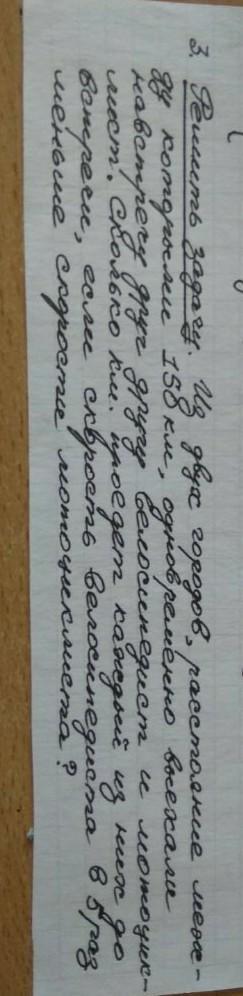 3. Решить задачу. Из двух городов, расстояние меж-
ду которыми 158 км, одновременно выехали
навстречу друг другу велосипедист и мотоцик-
лист. Сколько км. проедет каждый из них до
встречи, если скорость велосипедиста в 5 раз
меньше скорости мотоциклиста?